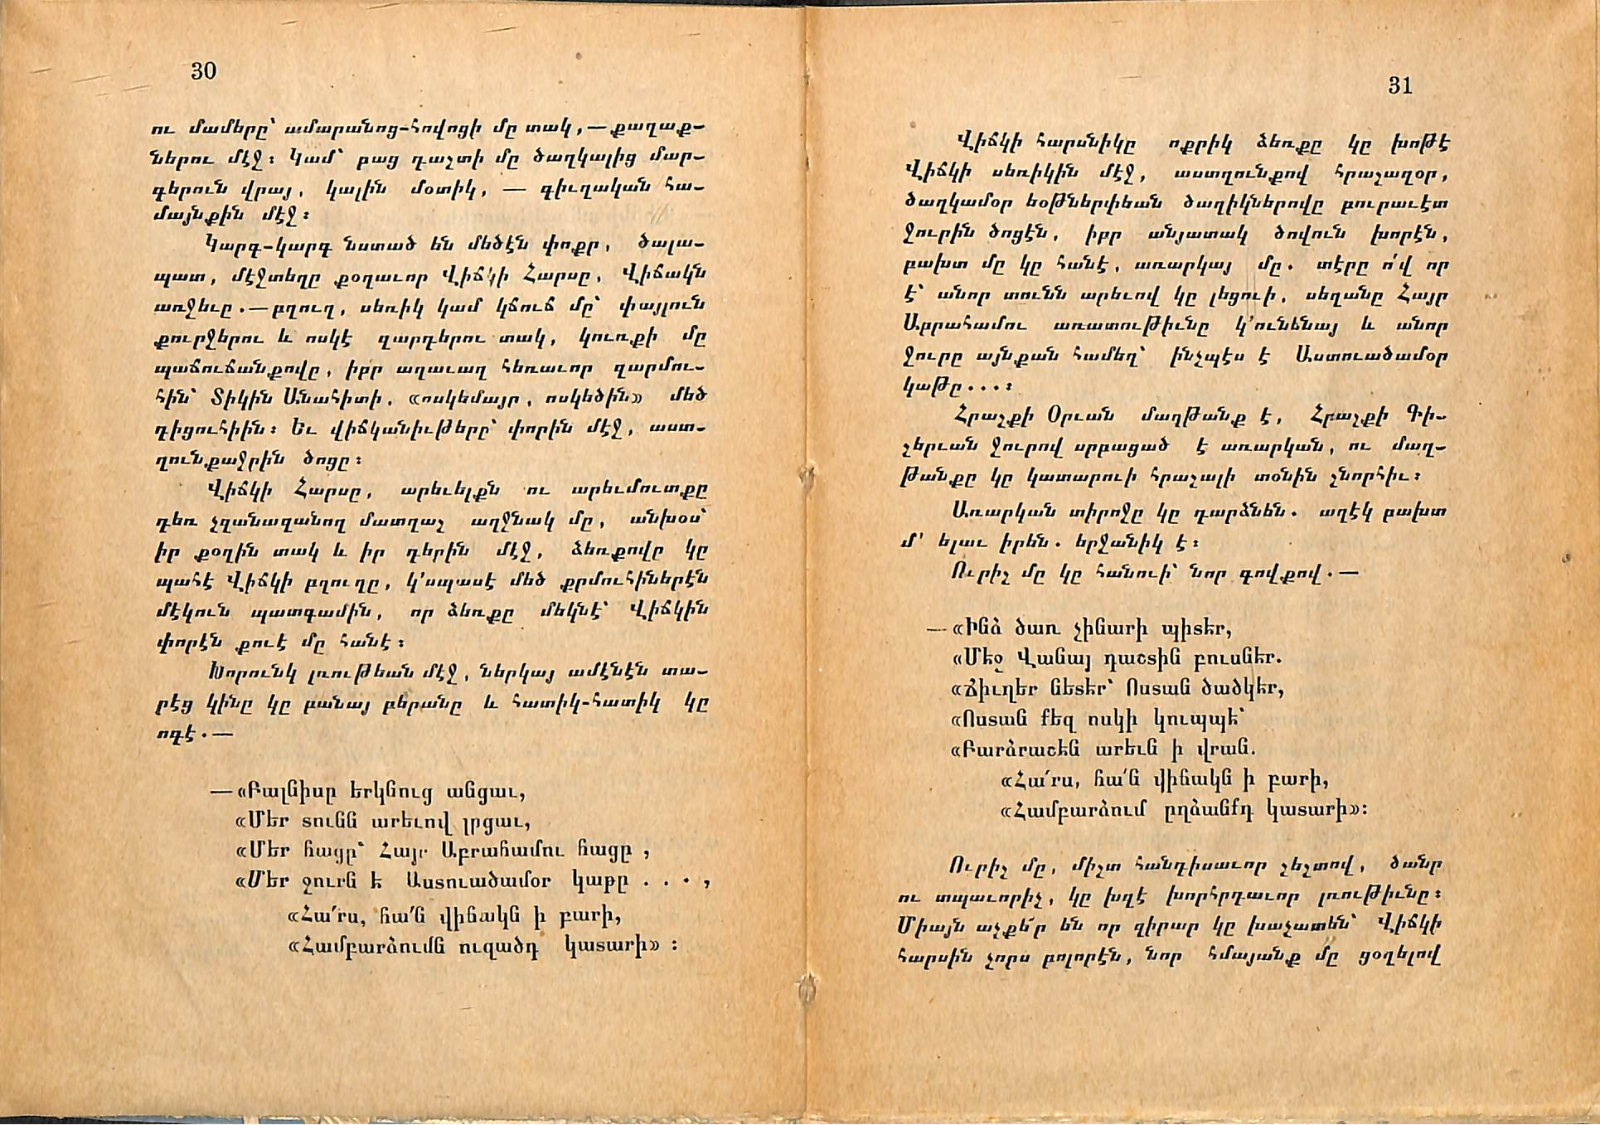 30
ու մամերը՝ ամարանոց-հովոցի մը տակ,— քաղաք-
ներու մէջ։ Կամ՝ բաց դաշտի մը ծաղկալից մար-
գերուն վրայ, կալին մօտիկ, — գիւղական հա-
մայնքին մէջ։
Կարգ-կարգ նստած են մեծէն փոքր, ծալա-
պատ, մէջտեղը քօղաւոր Վիճկի Հարսը, Վիճակն
առջեւը.— բղուղ, սեռիկ կամ կճուճ մը՝ փայլուն
քուրջերու և ոսկէ զարդերու տակ, կուռքի մը
պաճուճանքովը, իբր աղաւաղ հեռաւոր զարմու-
հին՝ Տիկին Անահիտի, «ոսկեմայր, ոսկեծին» մեծ
դիցուհիին։ Եւ վիճկանիւթերը՝ փորին մէջ, աստ-
ղունքաջրին ծոցը։
Վիճկի Հարսը, արեւելքն ու արեւմուտքը
դեռ չզանազանող մատղաշ աղջնակ մը, անխօս՝
իր քօղին տակ և իր դերին մէջ, ձեռքովը կը
պահէ Վիճկի բղուղը, կ՚սպասէ մեծ քրմուհիներէն
մէկուն պատգամին, որ ձեռքը մեկնէ՝ Վիճկին
փորէն քուէ մը հանէ։
Խորունկ լռութեան մէջ, ներկայ ամէնէն տա-
րէց կինը կը բանայ բերանը և հատիկ-հատիկ կը
ոգէ.—
—«Բալնիսր երկնուց անցաւ,
«Մեր տունն արեւով լըցաւ,
«Մեր հացը՝ Հայր Աբրահամու հացը ,
«Մեր ջուրն է Աստուածամօր կաթը . . . ,
«Հա՛րս, հա՛ն վիճակն ի բարի,
«Համբարձումն ուզածդ կատարի» ։
31
Վիճկի հարսնիկը ոքրիկ ձեռքը կը խոթէ
Վիճկի սեռիկին մէջ, աստղունքով հրաշաղօր,
ծաղկամօր եօթներփեան ծաղիկներովը բուրաւէտ
ջուրին ծոցէն, իբր անյատակ ծովուն խորէն,
բախտ մը կը հանէ, առարկայ մը. տէրը ո՛վ որ
է՝ անոր տունն արեւով կը լեցուի, սեղանը Հայր
Աբրահամու առատութիւնը կ՚ունենայ և անոր
ջուրը այնքան համեղ՝ ինչպէս է Աստուածամօր
կաթը...։
Հրաշքի Օրւան մաղթանք է, Հրաշքի Գի-
շերւան ջուրով սրբացած է առարկան, ու մաղ-
թանքը կը կատարուի հրաշալի տօնին շնորհիւ։
Առարկան տիրոջը կը դարձնեն. աղէկ բախտ
մ՚ ելաւ իրեն. երջանիկ է։
Ուրիշ մը կը հանուի՝ նոր գովքով.—
—«Ինձ ծառ չինարի պիտեր,
«Մեջ Վանայ դաշտին բուսներ.
«Ճիւղեր նետեր՝ Ոստան ծածկեր,
«Ոստան քեզ ոսկի կուպպէ՝
«Բարձրաշեն արեւն ի վրան.
«Հա՛րս, հա՛ն վիճակն ի բարի,
«Համբարձում ըղձանքդ կատարի»։
Ուրիշ մը, միշտ հանդիսաւոր շեշտով, ծանր
ու տպաւորիչ, կը խզէ խորհրդաւոր լռութիւնը։
Միայն աչքե՛ր են որ զիրար կը խաչատեն՝ Վիճկի
հարսին չորս բոլորէն, նոր հմայանք մը ցօղելով